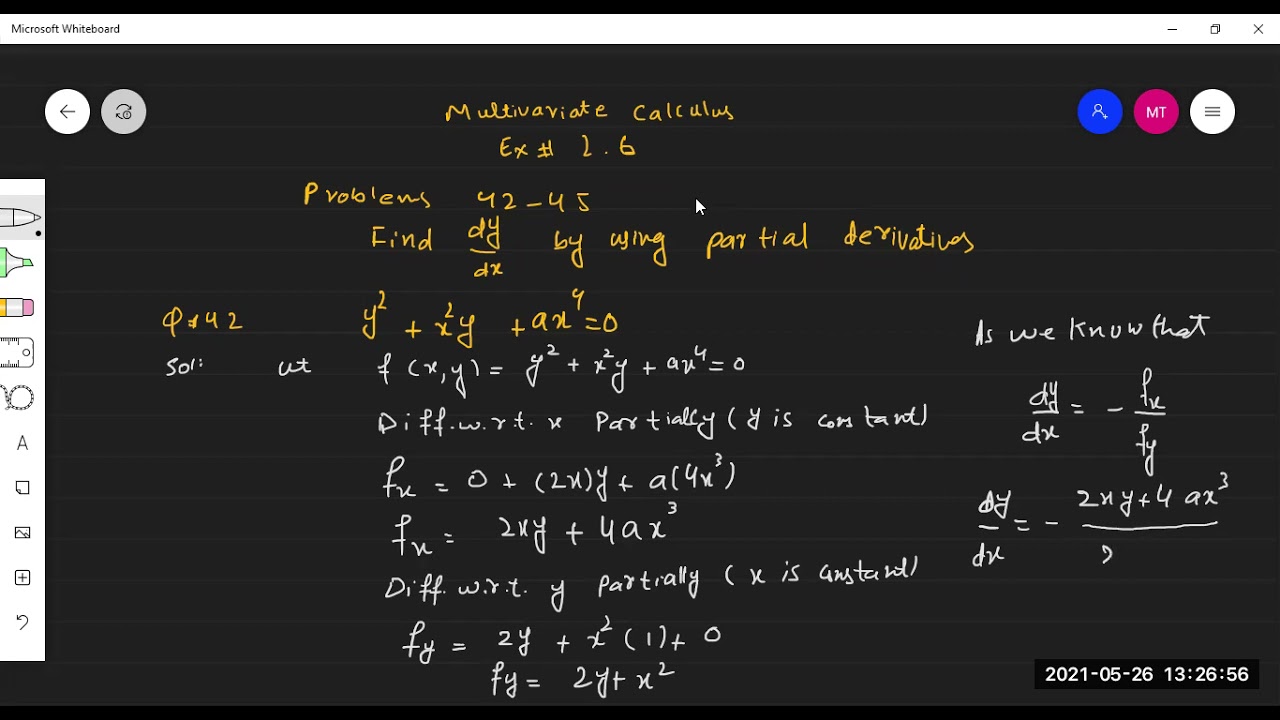 Microsoft Whiteboard
MT
Multivariate Calculus
Ex # 2.6
Problems 42-45
Find dy/dx by using partial derivatives
Q#42 y² + x²y + ax⁴ = 0
Sol: f(x,y) = y² + x²y + ax⁴ = 0
Diff. w.r.t. x Partially (y is constant)
fₓ = 0 + (2x)y + a(4x³)
fₓ = 2xy + 4ax³
Diff. w.r.t. y partially (x is constant)
f_y = 2y + x²(1) + 0
f_y = 2y + x²
As we know that
dy/dx = - fₓ/f_y
dy/dx = - 2xy + 4ax³
A
2021-05-26 13:26:56